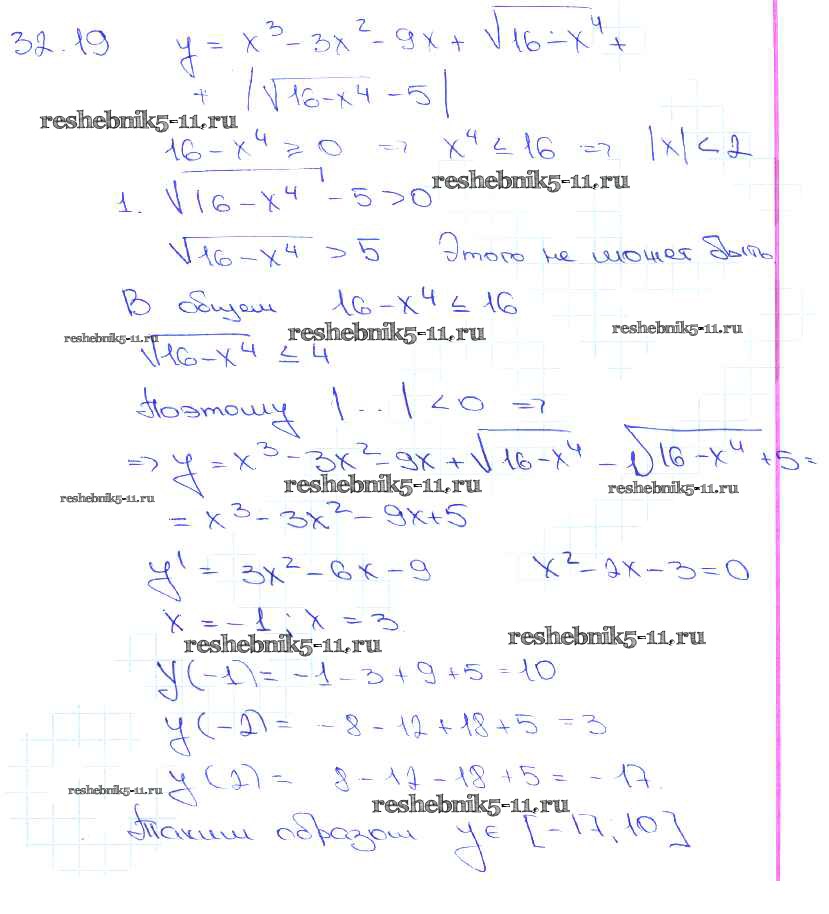 32.19 y = x³ - 3x² - 9x + √16-x⁴ +
+ |√16-x⁴ - 5|
reshebnik5-11.ru
16 - x⁴ ≥ 0 => x⁴ ≤ 16 => |x| < 2
reshebnik5-11.ru
1. √16-x⁴ - 5 > 0
√16-x⁴ > 5 Этого не может быть
В общем 16-x⁴ ≤ 16
reshebnik5-11.ru reshebnik5-11.ru reshebnik5-11.ru
√16-x⁴ ≤ 4
Поэтому |..| < 0 =>
=> y = x³ - 3x² - 9x + √16-x⁴ - √16-x⁴ + 5 =
reshebnik5-11.ru reshebnik5-11.ru reshebnik5-11.ru
= x³ - 3x² - 9x + 5
y' = 3x² - 6x - 9 x² - 2x - 3 = 0
x = -1; x = 3
reshebnik5-11.ru reshebnik5-11.ru
y(-1) = -1 - 3 + 9 + 5 = 10
y(-2) = -8 - 12 + 18 + 5 = 3
y(2) = 8 - 12 - 18 + 5 = -17.
reshebnik5-11.ru reshebnik5-11.ru
Таким образом y ∈ [-17; 10]